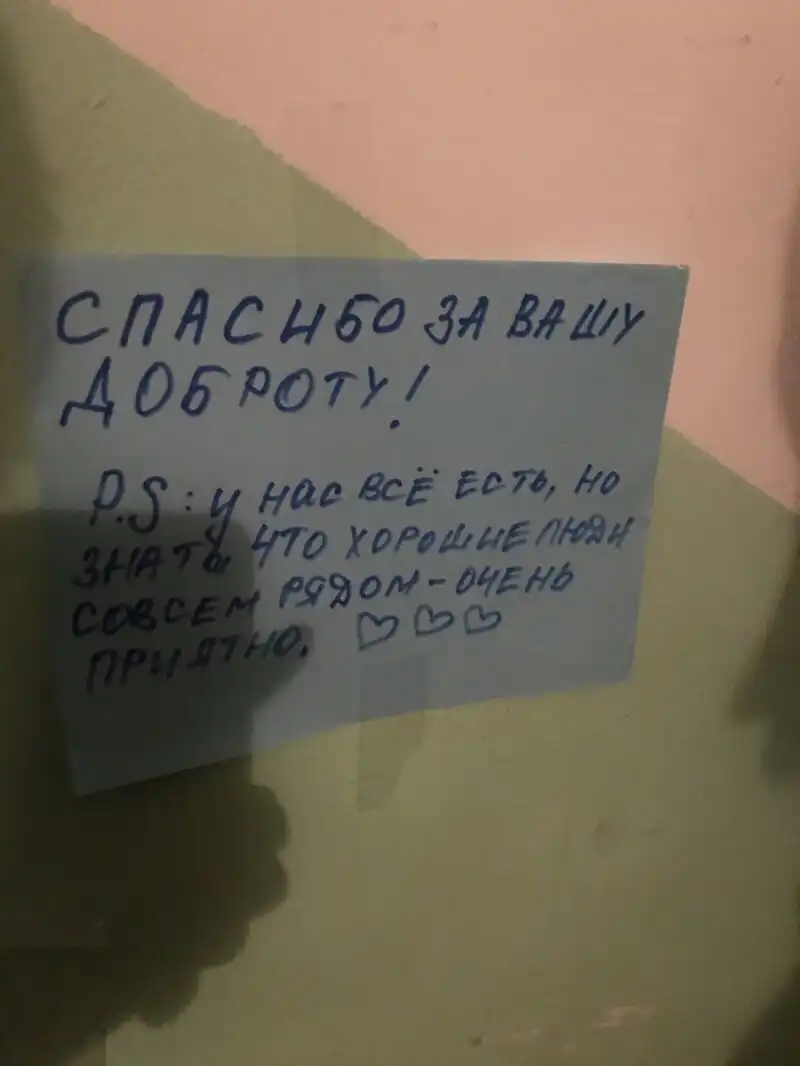 СПАСИБО ЗА ВАШУ
ДОБРОТУ!
P.S: У НАС ВСЁ ЕСТЬ, НО
ЗНАТЬ, ЧТО ХОРОШИЕ ЛЮДИ
СОВСЕМ РЯДОМ - ОЧЕНЬ
ПРИЯТНО. ♡♡♡